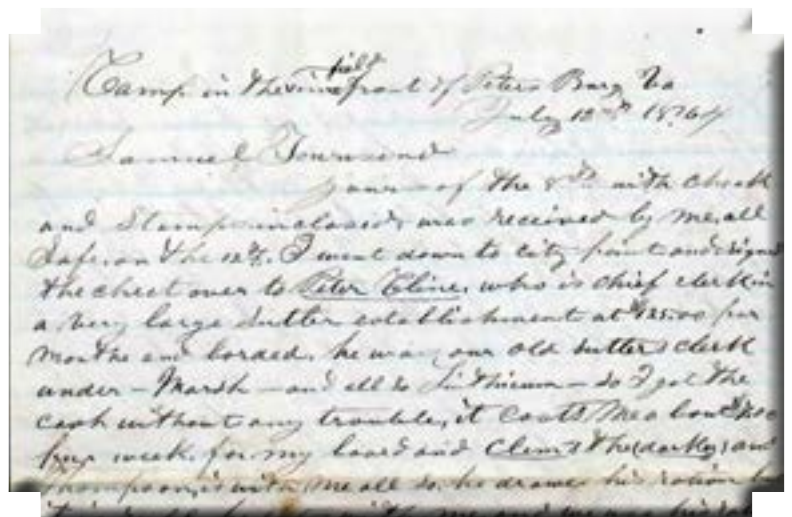 field
Camp in the front of Peters Burg Va
July 12th 1864
Samuel Townsend
yours of the 8th with check
and Stamps inclosed, was received by me, all
Safe, on the 12th. I went down to city point and signed
the check over to Peter Cline, who is chief clerk in
a very large Sutler establishment at $125.00 per
Monthe and borded, he was our old sutters clerk
under - Marsh - and all so Linthicum - so I got the
cash without any trouble, it costs Me about
per week, for my board and Clem's the (darkey) and
Thompson, is with me all so, he draws his ration
with me and